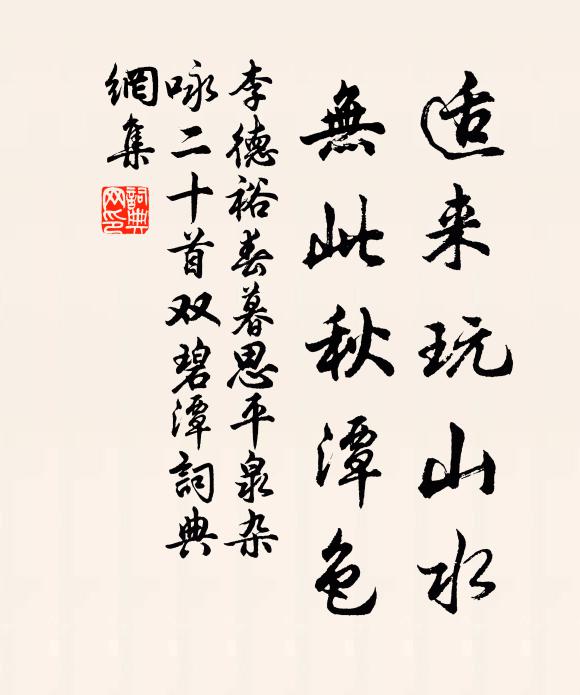 适来玩山水
無此秋潭色
李德裕春暮思平泉杂
咏二十首双碧潭詞典
網集
詞典网印